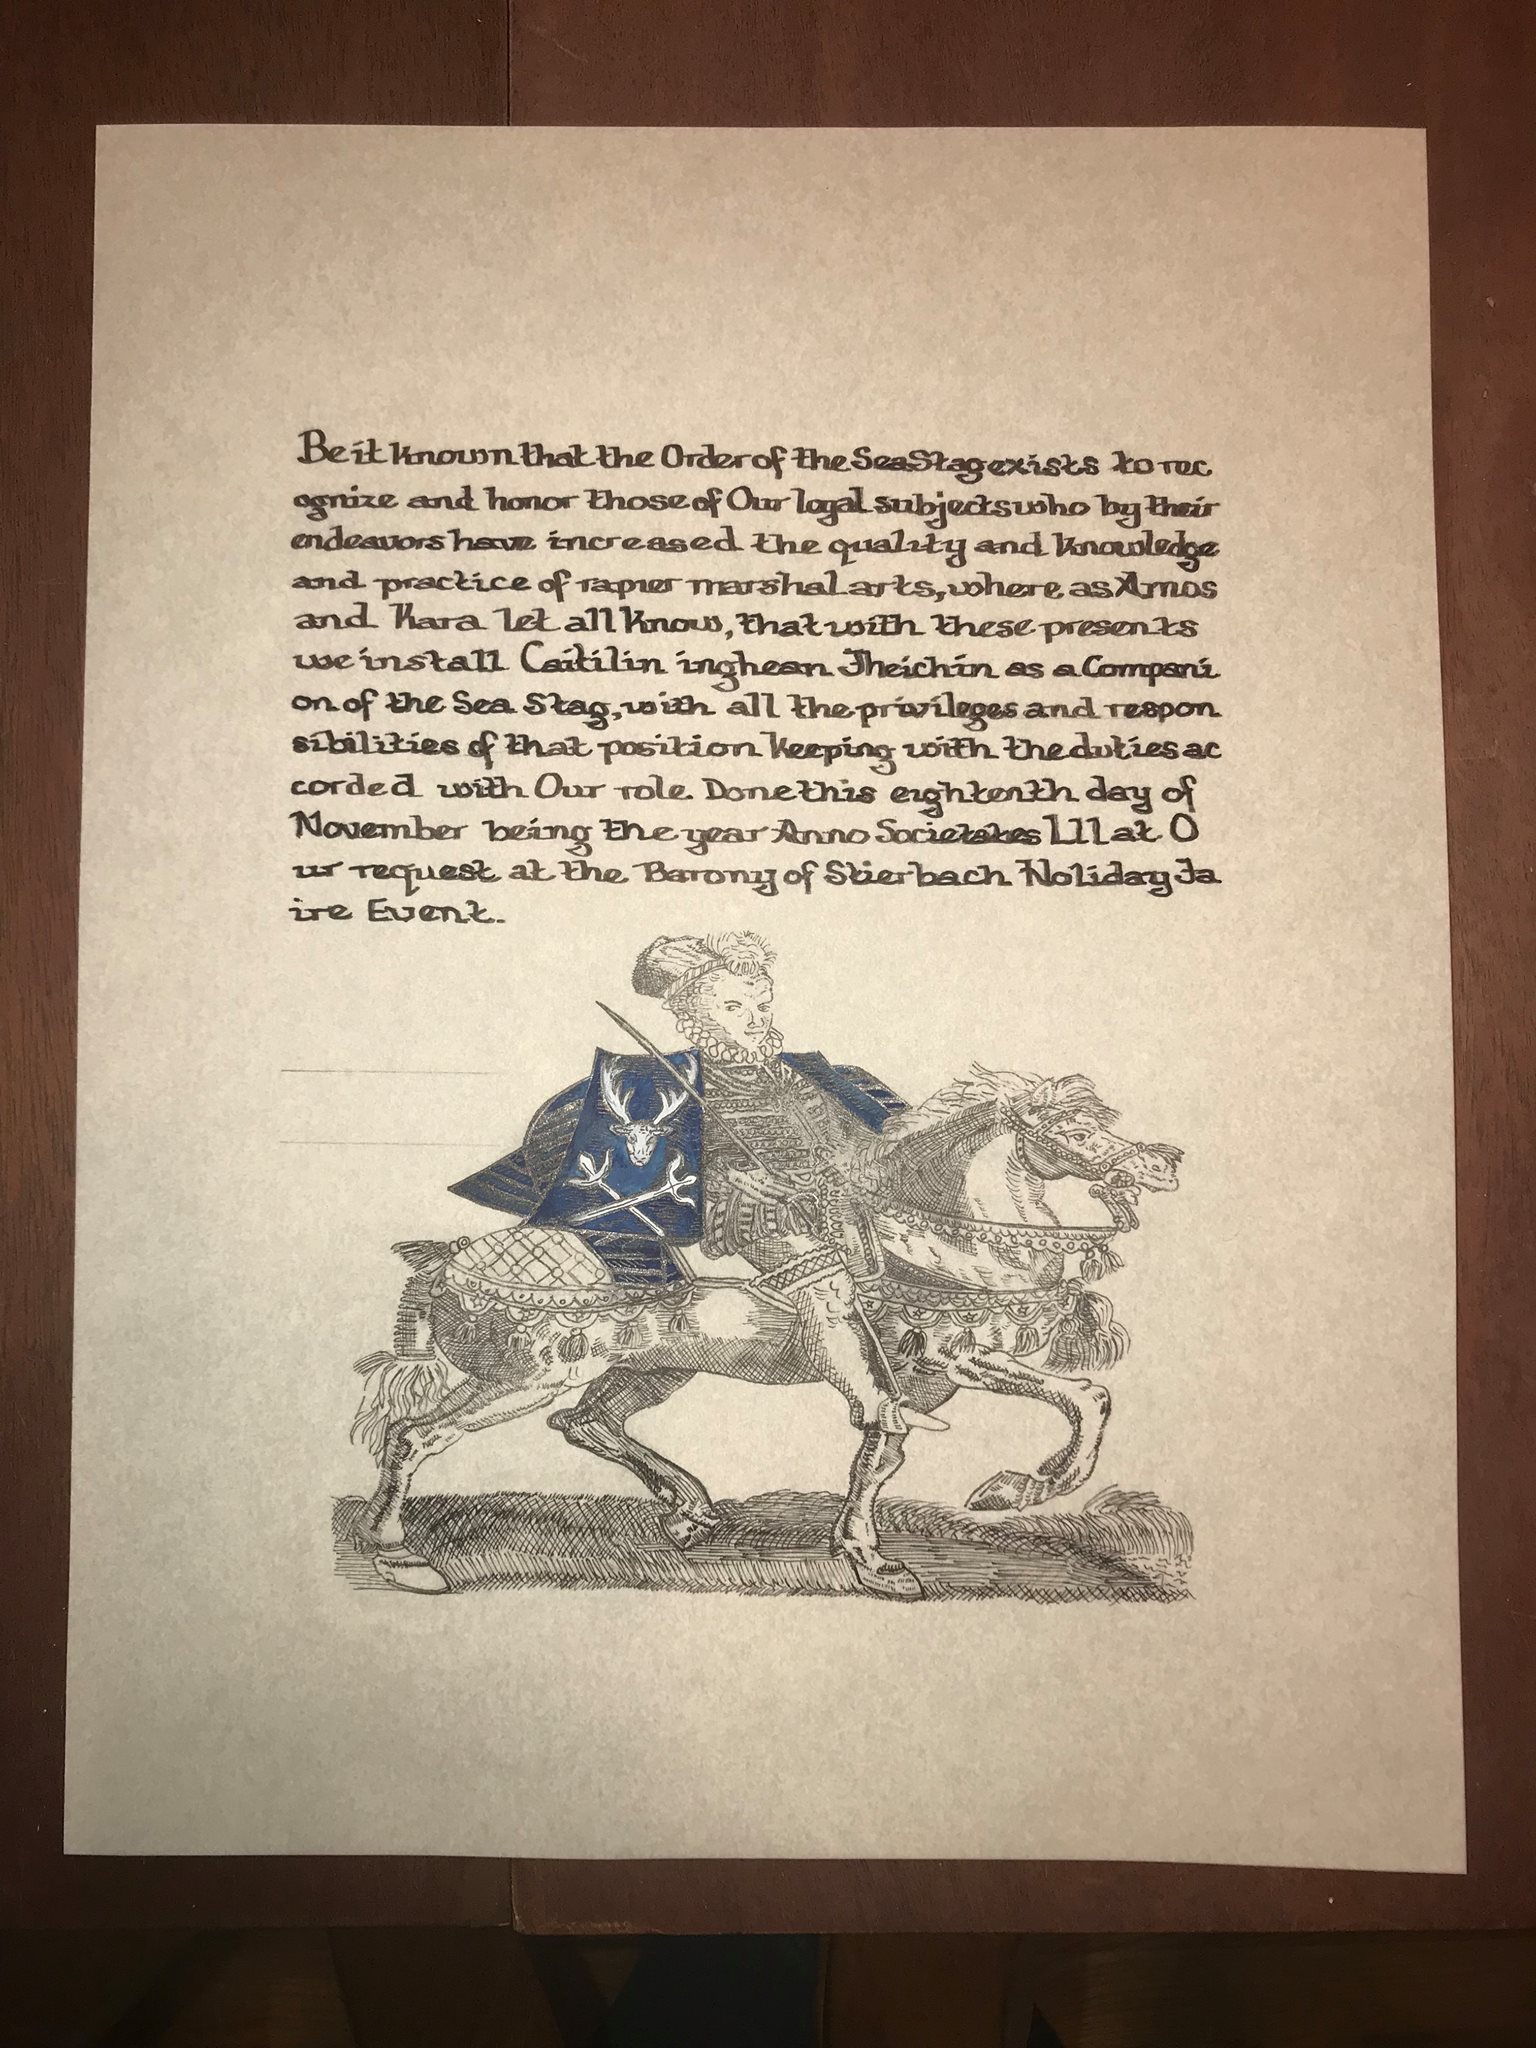 Be it known that the Order of the Sea Stag exists to rec
ognize and honor those of Our loyal subjects who by their
endeavors have increased the quality and knowledge
and practice of rapier marshal arts, where as Amos
and Kara let all know, that with these presents
we install Caitilin inghean Fheichin as a Compani
on of the Sea Stag, with all the privileges and respon
sibilities of that position keeping with the duties ac
corded with Our role Done this eightenth day of
November being the year Anno Societates LII at O
ur request at the Barony of Stierbach Holiday Fa
ire Event.